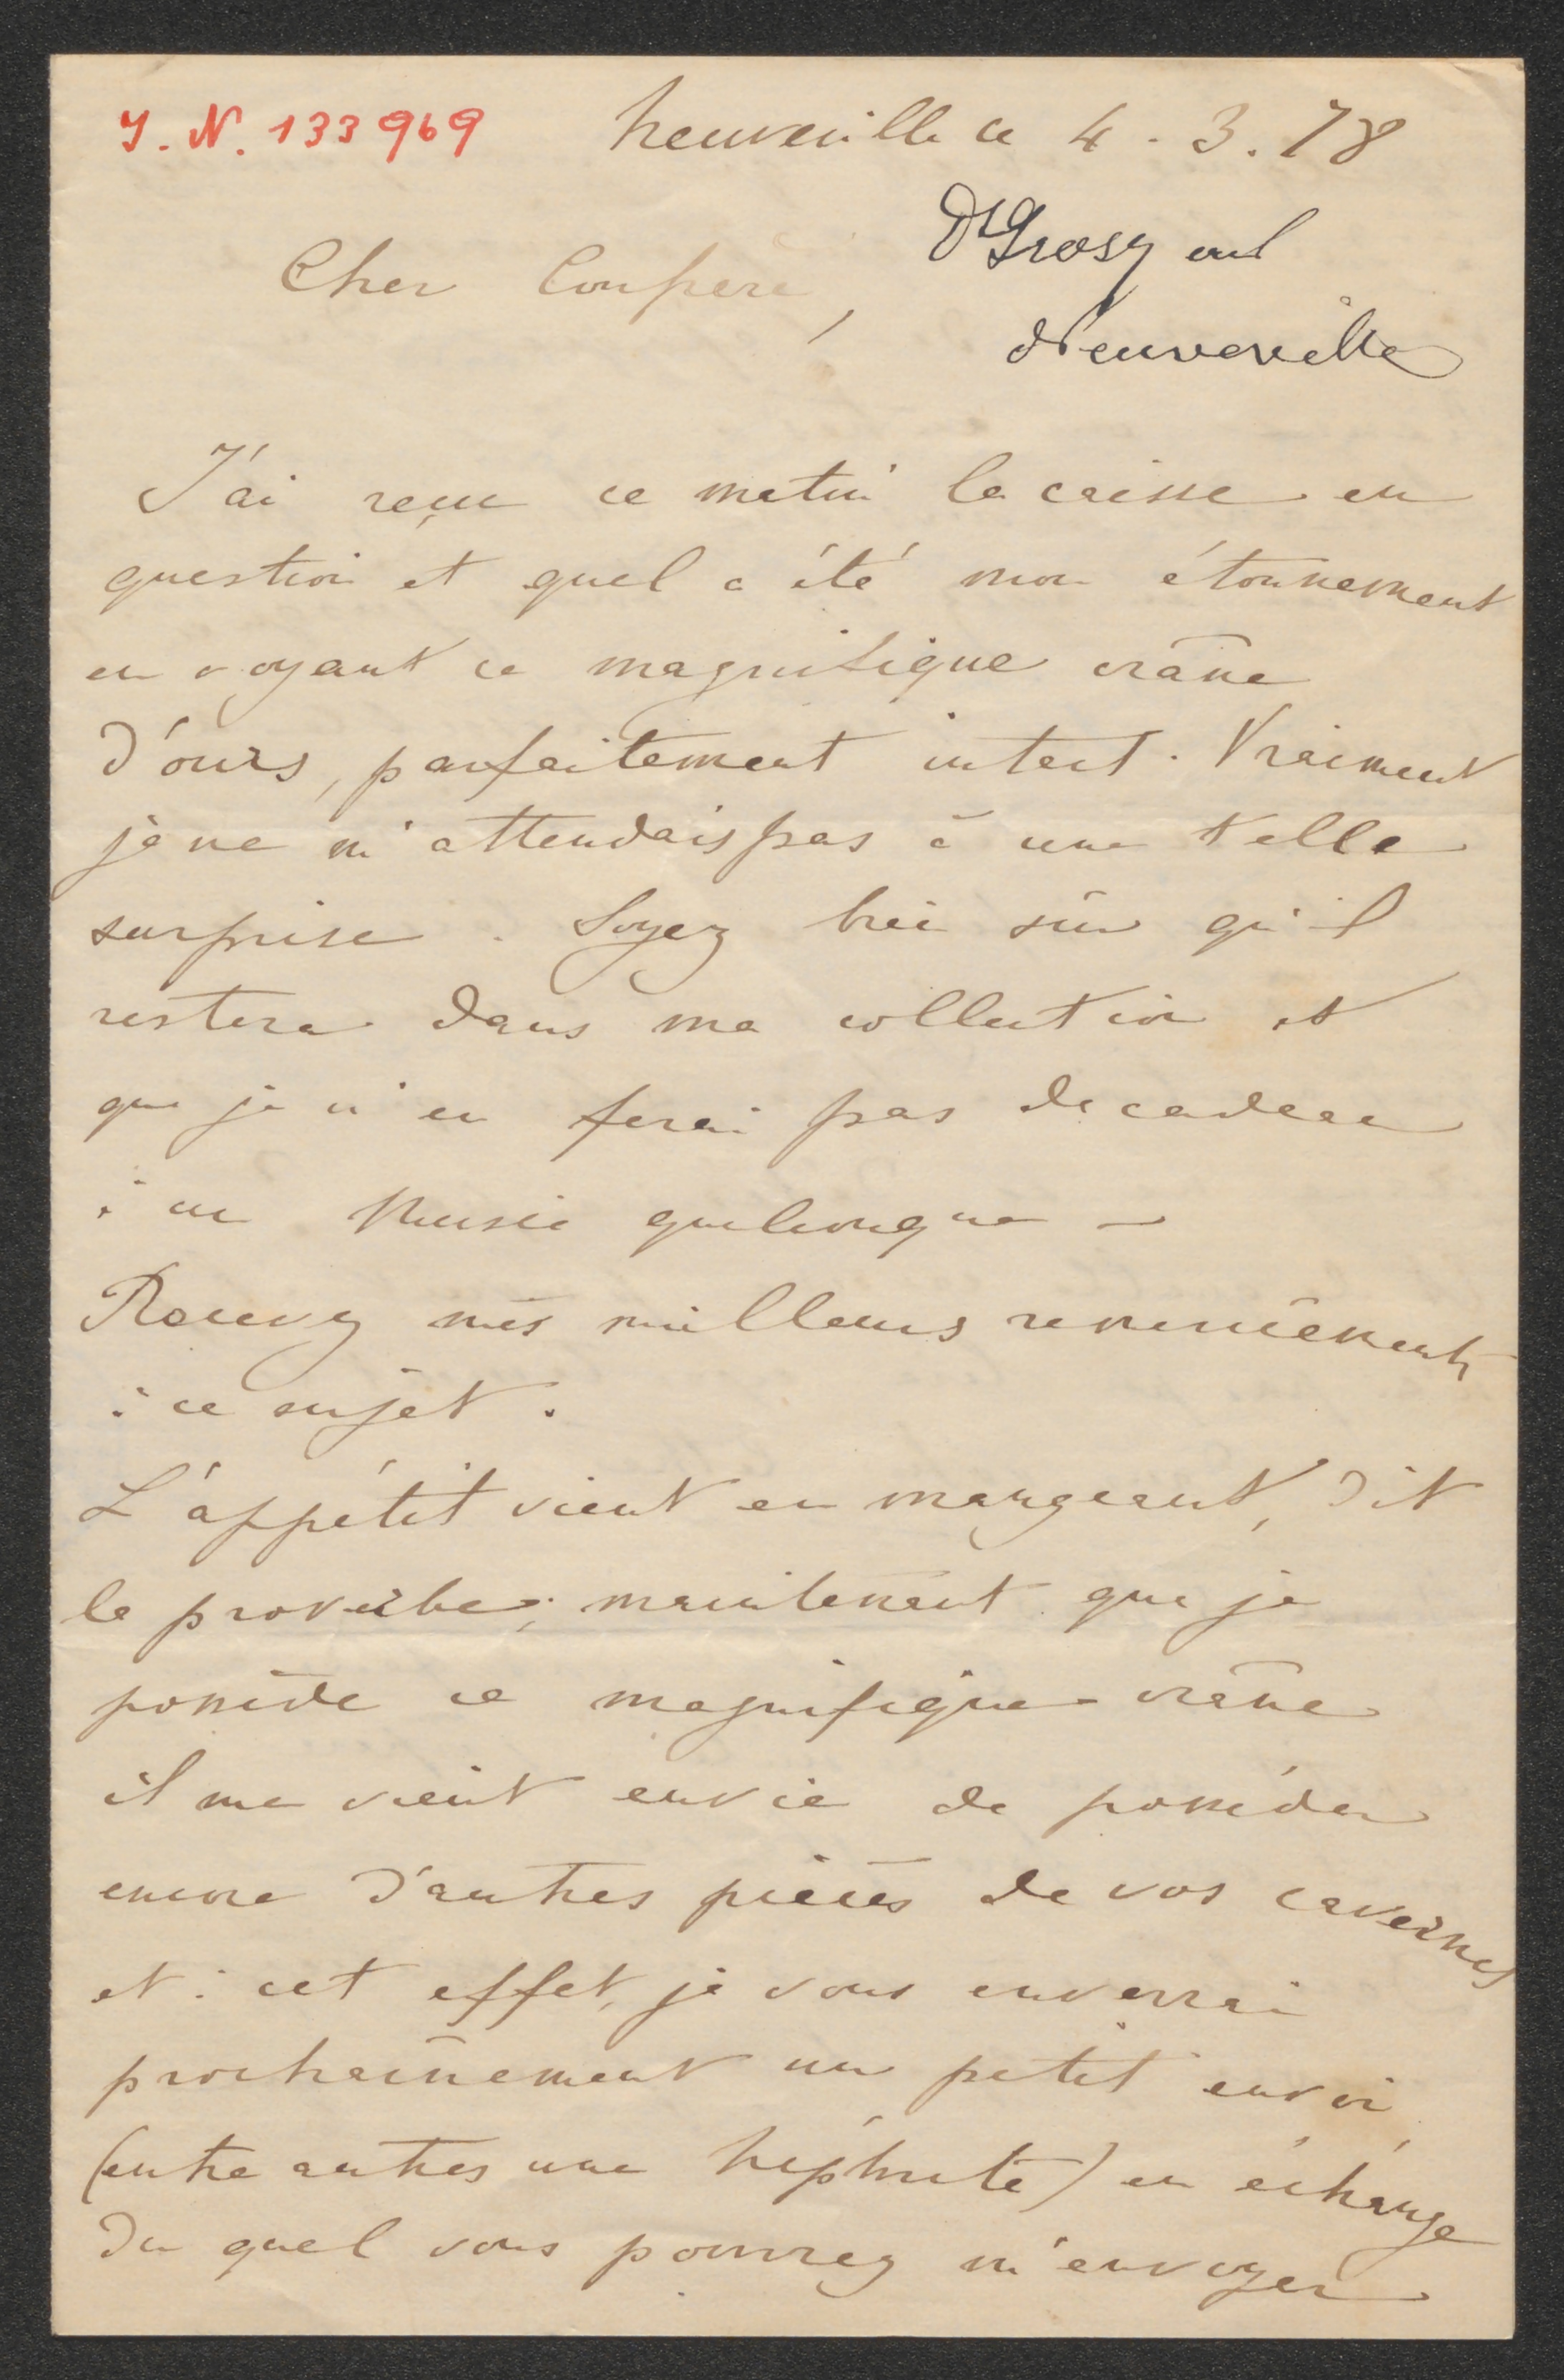 I. N. 133969
Neuveville ce 4. 3. 78
Dr Gross
Neuveville
Cher Confrère,
J'ai reçu ce matin la caisse en
question et quel a été mon étonnement
en voyant ce magnifique crâne
d'ours, parfaitement intact. Vraiment
je ne m'attendais pas à une telle
surprise. Soyez bien sûr qu'il
restera dans ma collection et
que je n'en ferai pas de cadeau
à un Musée quelconque —
Recevez mes meilleurs remerciements
à ce sujet.
L'appétit vient en mangeant, dit
le proverbe; maintenant que je
possède ce magnifique crâne
il me vient envie de posséder
encore d'autres pièces de vos cavernes
et à cet effet, je vous enverrai
prochainement un petit envoi
(entre autres une néphrite) en échange
du quel vous pourrez m'envoyer